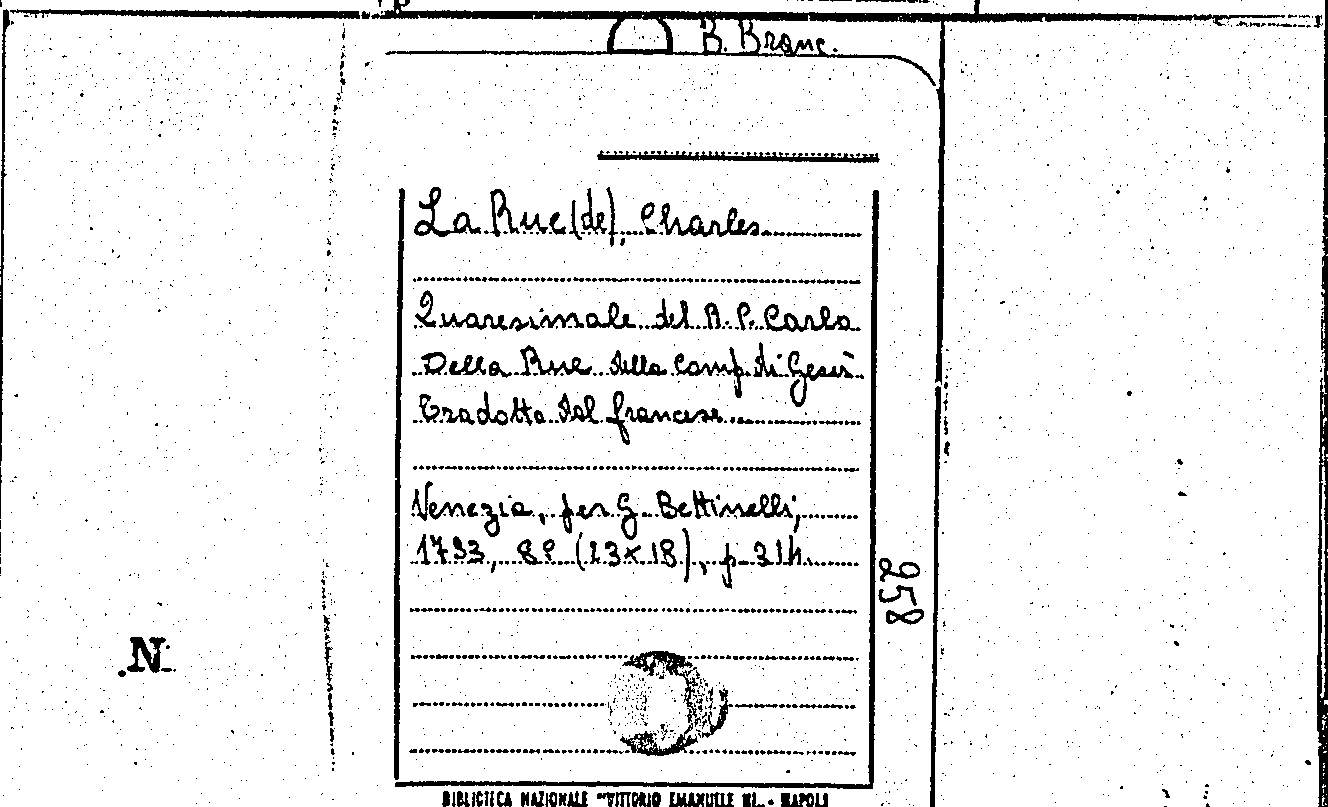 B. Branc.
La Rue (de), Charles
Quaresimale del R. P. Carlo
Della Rue della Comp. di Gesù
Tradotto dal francese...
Venezia, per G. Bettinelli,
1733, 8º (23×18), p. 314.
258
N
BIBLIOTECA NAZIONALE "VITTORIO EMANUELE III" - NAPOLI